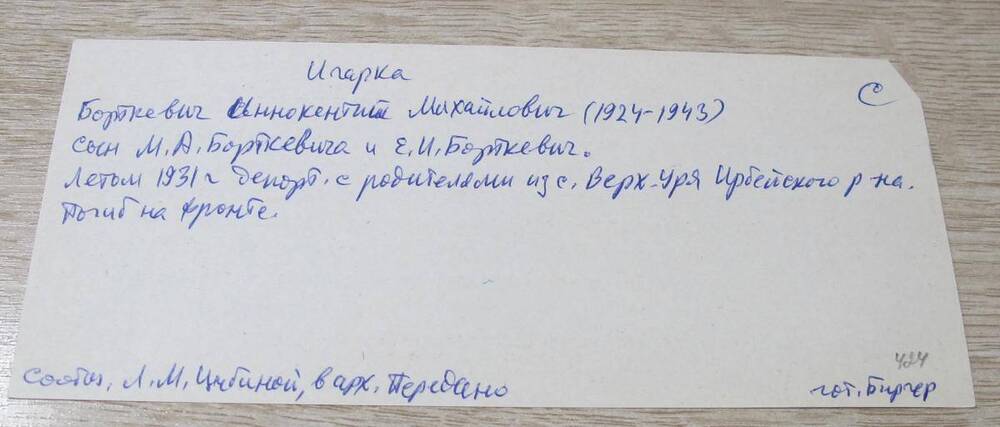 Игарка
С
Борткевич Иннокентий Михайлович (1924-1943)
сын М.А. Борткевича и Е.И. Борткевич.
Летом 1931 г депорт. с родителями из с. Верх-Уря Ирбейского р-на.
Погиб на фронте.
424
Сообщ. Л.М. Цыбиной, в арх. Передано
гот. Биргер